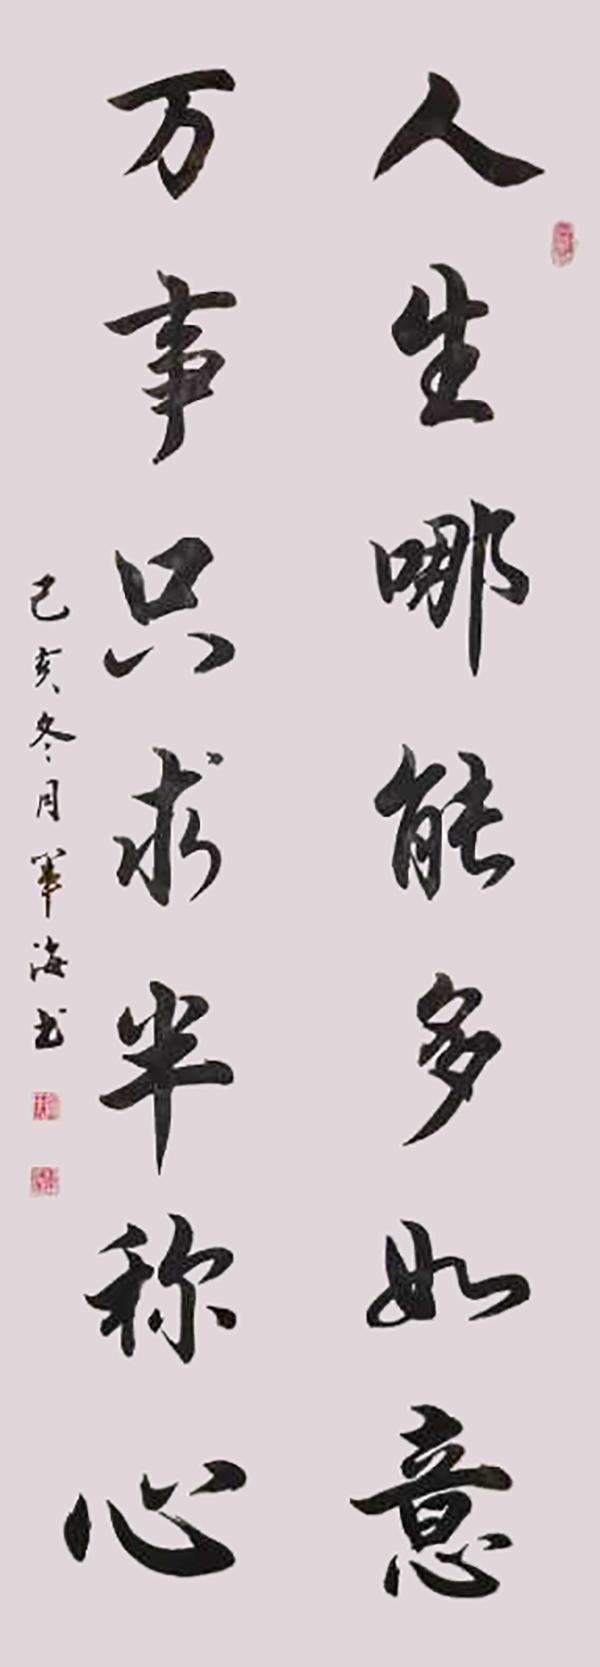 人生哪能多如意
万事只求半称心
己亥冬月军海书